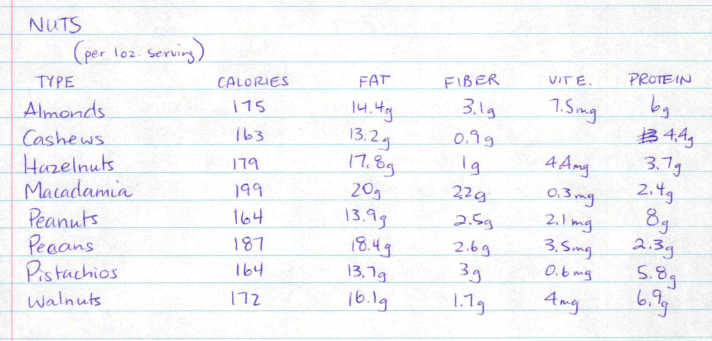 NUTS
(per 1oz. serving)
TYPE CALORIES FAT FIBER VIT E. PROTEIN
Almonds 175 14.4g 3.1g 7.5mg 6g
Cashews 163 13.2g 0.9g 4.4g
Hazelnuts 179 17.8g 1g 4.4mg 3.7g
Macadamia 199 20g 2.2g 0.3mg 2.4g
Peanuts 164 13.9g 2.5g 2.1mg 8g
Pecans 187 18.4g 2.6g 3.5mg 2.3g
Pistachios 164 13.7g 3g 0.6mg 5.8g
Walnuts 172 16.1g 1.7g 4mg 6.9g